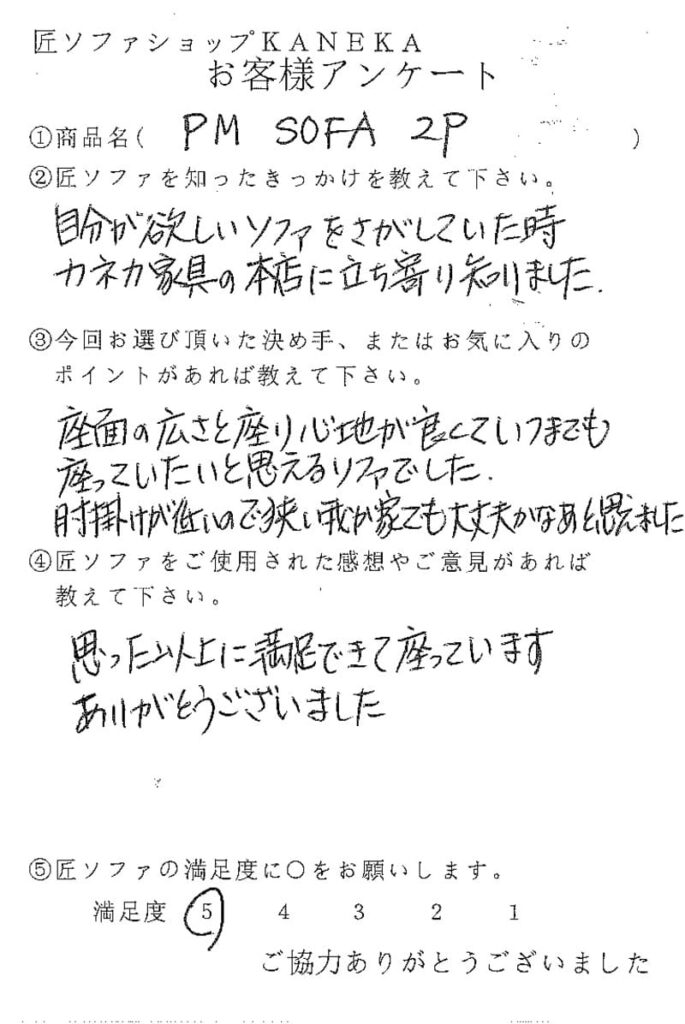 匠ソファショップKANEKA
お客様アンケート
①商品名( PM SOFA 2P )
②匠ソファを知ったきっかけを教えて下さい。
自分が欲しいソファをさがしていた時
カネカ家具の本店に立ち寄り知りました.
③今回お選び頂いた決め手、またはお気に入りの
ポイントがあれば教えて下さい。
座面の広さと座り心地が良くていつまでも
座っていたいと思えるソファでした.
肘掛けが低いので狭い我が家でも大丈夫かなあと思えました
④匠ソファをご使用された感想やご意見があれば
教えて下さい。
思った以上に満足できて座っています
ありがとうございました
⑤匠ソファの満足度に○をお願いします。
満足度 5 4 3 2 1
ご協力ありがとうございました